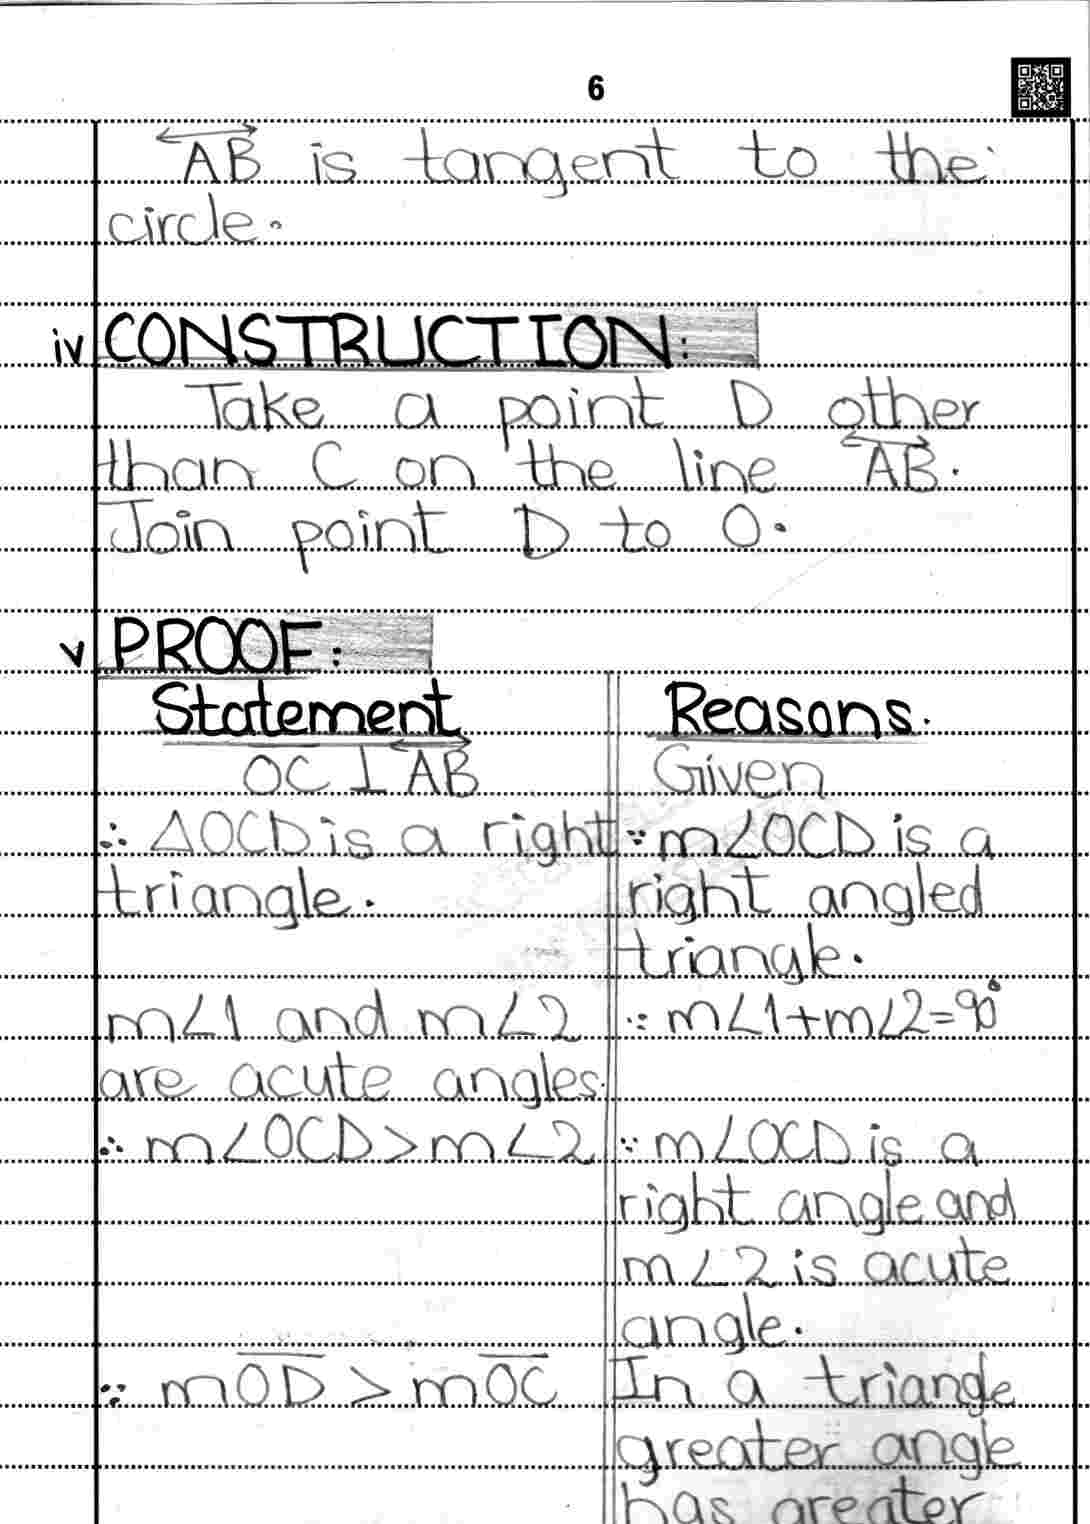 6
AB is tangent to the
circle.
iv CONSTRUCTION:
Take a point D other
than C on the line AB.
Join point D to O.
v PROOF:
Statement Reasons.
OC ⊥ AB Given
∴ △OCD is a right ∵ m∠OCD is a
triangle. right angled
triangle.
m∠1 and m∠2 ∵ m∠1+m∠2=90°
are acute angles.
∴ m∠OCD > m∠2 ∵ m∠OCD is a
right angle and
m∠2 is acute
angle.
∵ mOD > mOC In a triangle
greater angle
has greater